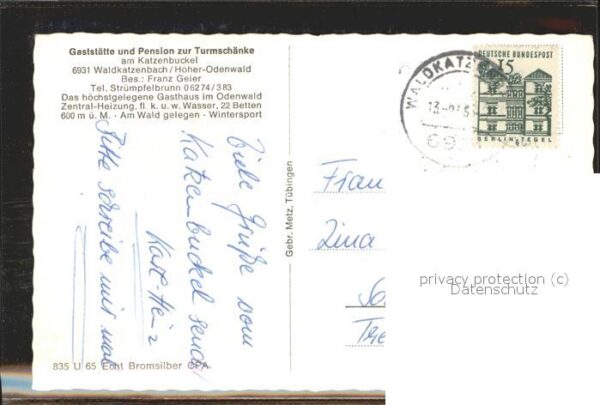 Gaststätte und Pension zur Turmschänke
am Katzenbuckel
6931 Waldkatzenbach / Hoher-Odenwald
Bes.: Franz Geier
Tel. Strümpfelbrunn 06274/383
Das höchstgelegene Gasthaus im Odenwald
Zentral-Heizung, fl. k. u. w. Wasser, 22 Betten
600 m ü. M. · Am Wald gelegen · Wintersport
Viele Grüße vom
Katzenbuckel sendet
Karl-Heinz
Bitte schreibe mir mal
835 U 65 Echt Bromsilber CPA
Gebr. Metz, Tübingen
DEUTSCHE BUNDESPOST
15
BERLIN-TEGEL
WALDKATZ
Frau
Lina
privacy protection (c)
Datenschutz